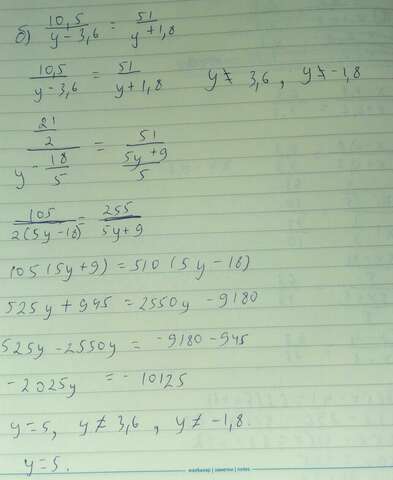 б) 10,5/(y-3,6) = 51/(y+1,8)
10,5/(y-3,6) = 51/(y+1,8)   y≠ 3,6 , y≠ -1,8
(21/2)/(y - 18/5) = 51/((5y+9)/5)
105/(2(5y-18)) = 255/(5y+9)
105(5y+9) = 510(5y-18)
525y + 945 = 2550y - 9180
525y - 2550y = -9180 - 945
-2025y = -10125
y=5, y≠ 3,6 , y≠ -1,8.
y=5.